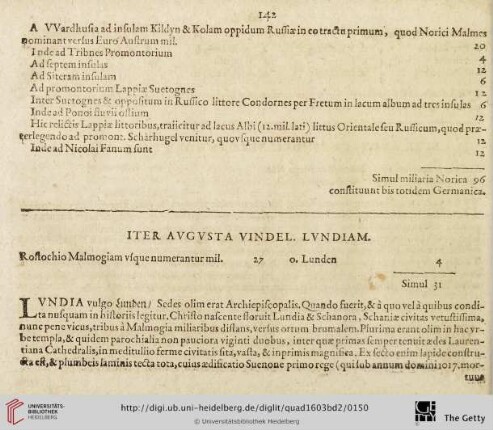 142
A VVardhusia ad insulam Kildyn & Kolam oppidum Russiæ in eo tractu primum, quod Norici Malmes
nominant versus Euro Austrum mil. 20
Inde ad Tribnes Promontorium 4
Ad septem insulas 12
Ad Siteram insulam 6
Ad promontorium Lappiæ Suetognes 12
Inter Suetognes & oppositum in Russico littore Condornes per Fretum in lacum album ad tres insulas 6
Inde ad Ponoi fluvii ostium 12
Hic relictis Lappiæ littoribus, traiicitur ad lacus Albi (12. mil. lati) littus Orientale seu Russicum, quod præ-
terlegendo ad promont. Scharhugel venitur, quovsque numerantur 12
Inde ad Nicolai Fanum sunt 12
Simul miliaria Norica 96
constituunt bis totidem Germanica.
ITER AVGVSTA VINDEL. LVNDIAM.
Rostochio Malmogiam vsque numerantur mil. 27 o. Lunden 4
Simul 31
LVNDIA vulgo Lunden/ Sedes olim erat Archiepiscopalis. Quando fuerit, & à quo vel à quibus condi-
ta nusquam in historiis legitur. Christo nascente floruit Lundia & Schanora, Schaniæ civitas vetustissima,
nunc pene vicus, tribus à Malmogia miliaribus distans, versus ortum brumalem. Plurima erant olim in hac vr-
be templa, & quidem parochialia non pauciora viginti duobus, inter quæ primas semper tenuit ædes Lauren-
tiana Cathedralis, in meditullio ferme civitatis sita, vasta, & inprimis magnifica. Ex secto enim lapide constru-
cta est, & plumbeis laminis tecta tota, cuius ædificatio Suenone primo rege (qui sub annum domini 1017. mor-
tuus
UNIVERSITÄTS-
BIBLIOTHEK
HEIDELBERG
http://digi.ub.uni-heidelberg.de/diglit/quad1603bd2/0150
© Universitätsbibliothek Heidelberg
The Getty